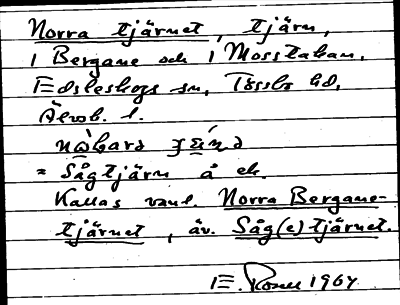 Norra tjärnet, tjärn,
i Bergane och i Mosstakan,
Edsleskogs sn, Tössbo hd,
Älvsb. l.
= Sågtjärn å ek.
Kallas vanl. Norra Bergane-
tjärnet, äv. Såg(e)tjärnet.
1964